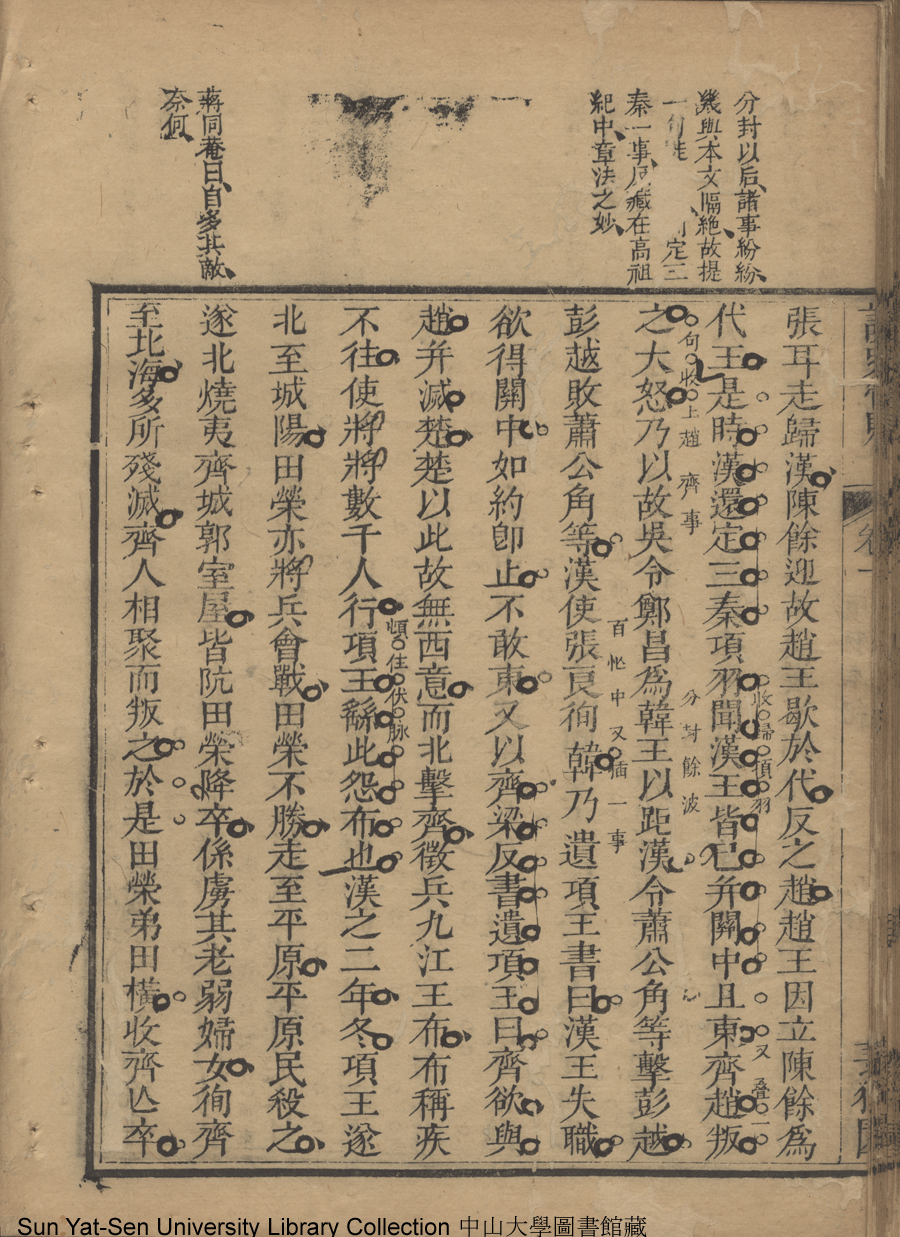 分封以后諸事紛紛
幾與本文隔絶故提
一句
定三
秦一事藏在高祖
紀中章法之妙
蔣侗菴曰自多其敵
奈何
張耳走歸漢陳餘迎故趙王歇於代反之趙趙王因立陳餘爲
代王是時漢還定三秦項羽聞漢王皆已并關中且東齊趙叛
收歸項羽
又叠一
之大怒乃以故吳令鄭昌爲韓王以距漢令蕭公角等擊彭越
句收上趙齊事
分封餘波
彭越敗蕭公角等漢使張良徇韓乃遺項王書曰漢王失職
百忙中又插一事
欲得關中如約卽止不敢東又以齊梁反書遺項王曰齊欲與
趙并滅楚楚以此故無西意而北擊齊徵兵九江王布布稱疾
不往使將將數千人行項王繇此怨布也漢之二年冬項王遂
頓住伏脉
北至城陽田榮亦將兵會戰田榮不勝走至平原平原民殺之
遂北燒夷齊城郭室屋皆阬田榮降卒係虜其老弱婦女徇齊
至北海多所殘滅齊人相聚而叛之於是田榮弟田橫收齊亾卒
卷一
Sun Yat-Sen University Library Collection 中山大學圖書館藏